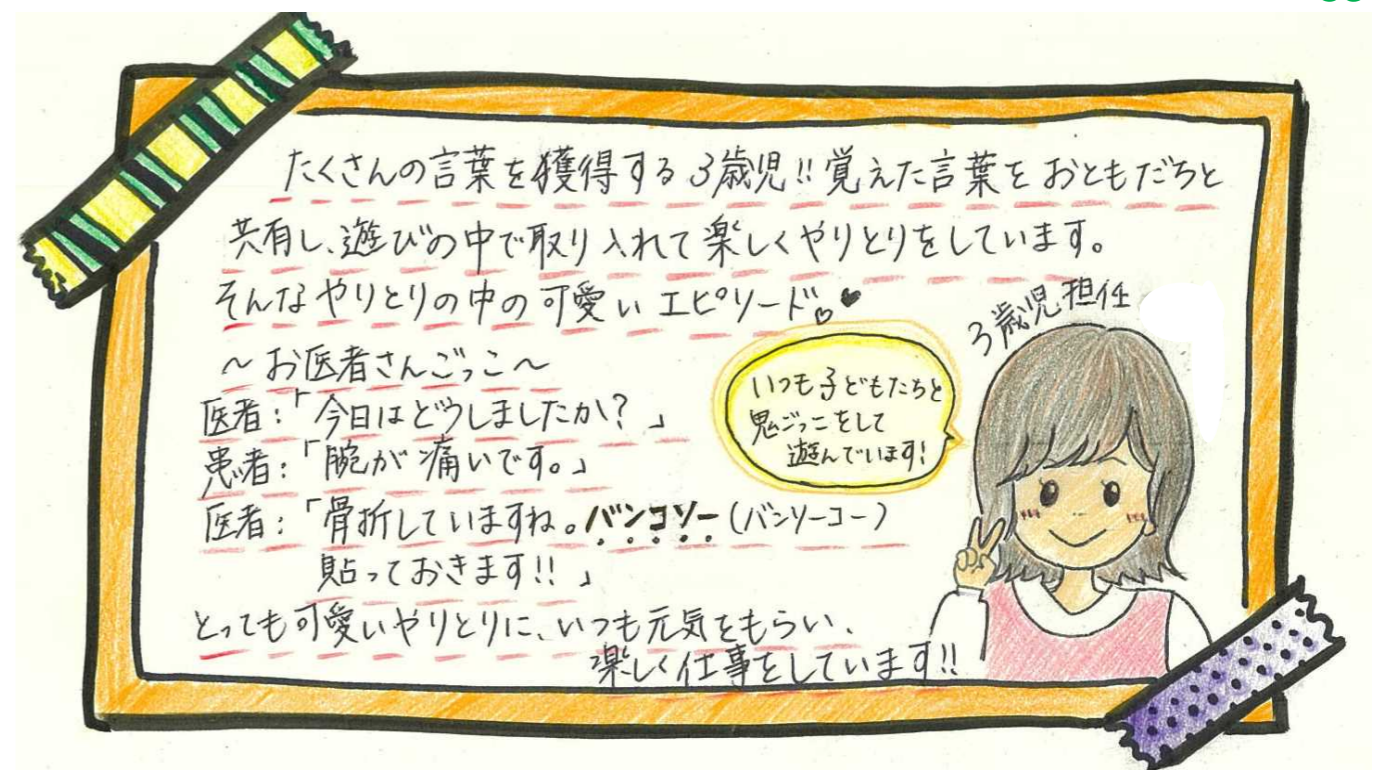 たくさんの言葉を獲得する3歳児!!覚えた言葉をおともだちと
共有し、遊びの中で取り入れて楽しくやりとりをしています。
そんなやりとりの中の可愛いエピソード。
～お医者さんごっこ～
医者:「今日はどうしましたか?」
患者:「腕が痛いです。」
医者:「骨折していますね。バンコソー(バンソーコー)
貼っておきます!!」
とっても可愛いやりとりに、いつも元気をもらい、
楽しく仕事をしています!!
3歳児担任
いつも子どもたちと
鬼ごっこをして
遊んでいます!